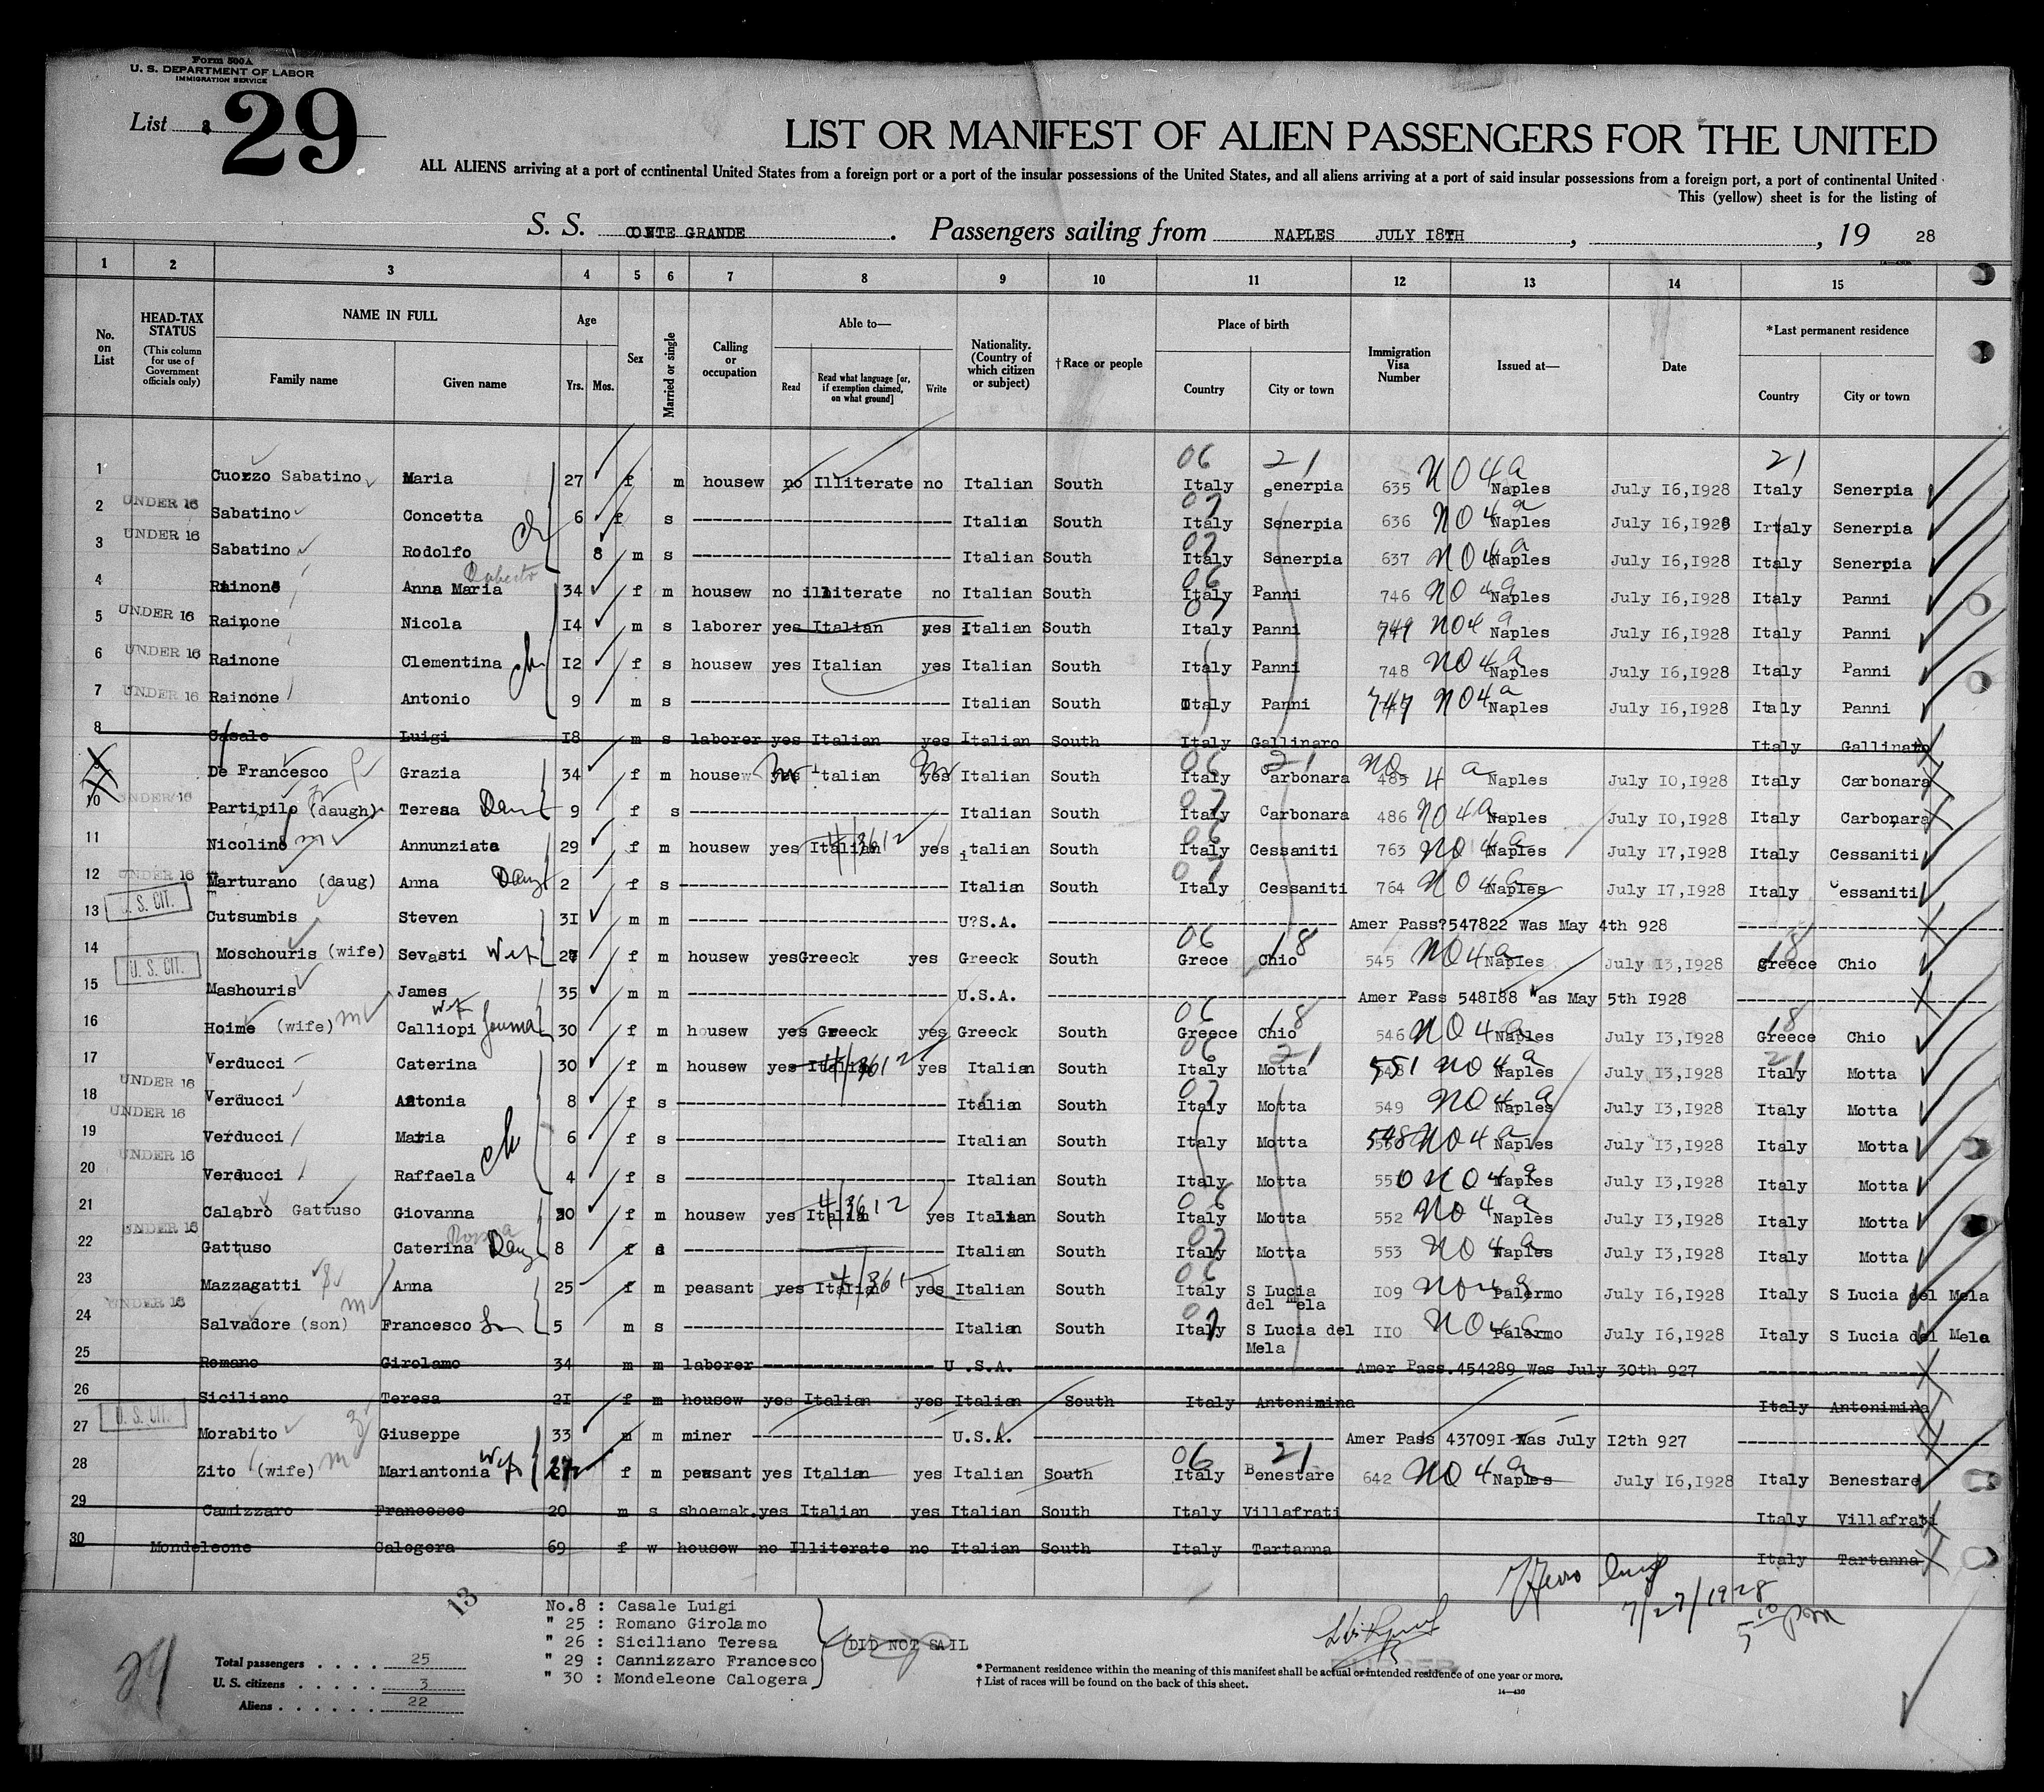 Form 500A
U. S. DEPARTMENT OF LABOR
IMMIGRATION SERVICE
List 29
LIST OR MANIFEST OF ALIEN PASSENGERS FOR THE UNITED
ALL ALIENS arriving at a port of continental United States from a foreign port or a port of the insular possessions of the United States, and all aliens arriving at a port of said insular possessions from a foreign port, a port of continental United
This (yellow) sheet is for the listing of
S. S. CONTE GRANDE. Passengers sailing from NAPLES JULY I8TH, , 19 28
14—430
1 2 3 4 5 6 7 8 9 10 11 12 13 14 15
No. on List
HEAD-TAX STATUS (This column for use of Government officials only)
NAME IN FULL Family name Given name
Age Yrs. Mos.
Sex
Married or single
Calling or occupation
Able to— Read Read what language [or, if exemption claimed, on what ground] Write
Nationality. (Country of which citizen or subject)
† Race or people
Place of birth Country City or town
Immigration Visa Number
Issued at—
Date
*Last permanent residence Country City or town
06 21 21
1 Cuozzo Sabatino Maria 27 f m housew no Illiterate no Italian South Italy Senerpia 635 NO 4 a Naples July I6,I928 Italy Senerpia
2 UNDER 16 Sabatino Concetta 6 f s Italian South 07 Italy Senerpia 636 NO 4 a Naples July I6,I928 Irtaly Senerpia
3 UNDER 16 Sabatino Rodolfo ch 8 m s Italian South 07 Italy Senerpia 637 NO 4 a Naples July I6,I928 Italy Senerpia
4 Rainone Anna Maria 34 f m housew no illiterate no Italian South 06 Italy Panni 746 NO 4 a Naples July I6,I928 Italy Panni
5 UNDER 16 Rainone Nicola I4 m s laborer yes Italian yes Italian South 07 Italy Panni 749 NO 4 a Naples July I6,I928 Italy Panni
6 UNDER 16 Rainone Clementina ch I2 f s housew yes Italian yes Italian South Italy Panni 748 NO 4 a Naples July I6,I928 Italy Panni
7 UNDER 16 Rainone Antonio 9 m s Italian South Italy Panni 747 NO 4 a Naples July I6,I928 Italy Panni
8 Casale Luigi I8 m s laborer yes Italian yes Italian South Italy Gallinaro Italy Gallinaro
9 De Francesco Grazia 34 f m housew yes Italian yes Italian South 06 Italy 21 Carbonara 485 NO 4 a Naples July I0,I928 Italy Carbonara
10 UNDER 16 Partipilo (daugh) Teresa Dau 9 f s Italian South 07 Italy Carbonara 486 NO 4 a Naples July I0,I928 Italy Carbonara
11 Nicolino m Annunziata 29 f m housew yes Italian yes italian South 06 Italy Cessaniti 763 NO 4 a Naples July I7,I928 Italy Cessaniti
12 UNDER 16 Marturano (daug) Anna Daug 2 f s Italian South 07 Italy Cessaniti 764 NO 4 a Naples July I7,I928 Italy Cessaniti
13 U. S. CIT. Cutsumbis Steven 3I m m U?S.A. Amer Pass?547822 Was May 4th 928
14 Moschouris (wife) Sevasti Wif f m housew yesGreeck yes Greeck South 06 Grece Chio 18 545 NO 4 a Naples July I3,I928 18 greece Chio
15 U. S. CIT. Mashouris James 35 m m U.S.A. Amer Pass 548I88 Was May 5th I928
16 Hoime (wife) m Calliopi Wif 30 f m housew yes Greeck yes Greeck South 06 Greece Chio 18 546 NO 4 a Naples July I3,I928 18 Greece Chio
17 Verducci Caterina 30 f m housew yes Italian yes Italian South 06 Italy 21 Motta 551 NO 4 a Naples July I3,I928 21 Italy Motta
18 UNDER 16 Verducci Antonia 8 f s Italian South 07 Italy Motta 549 NO 4 a Naples July I3,I928 Italy Motta
19 UNDER 16 Verducci Maria ch 6 f s Italian South Italy Motta 548 NO 4 a Naples July I3,I928 Italy Motta
20 UNDER 16 Verducci Raffaela 4 f s Italian South Italy Motta 550 NO 4 a Naples July I3,I928 Italy Motta
21 Calabrò Gattuso Giovanna f m housew yes Italian yes Italian South 06 Italy Motta 552 NO 4 a Naples July I3,I928 Italy Motta
22 UNDER 16 Gattuso Caterina Daug 8 f s Italian South 07 Italy Motta 553 NO 4 a Naples July I3,I928 Italy Motta
23 Mazzagatti Anna 25 f m peasant yes Italian yes Italian South 06 Italy S Lucia del Mela I09 NO 4 a Palermo July I6,I928 Italy S Lucia del Mela
24 UNDER 16 Salvadore (son) Francesco Son 5 m s Italian South 07 Italy S Lucia del Mela II0 NO 4 a Palermo July I6,I928 Italy S Lucia del Mela
25 Romano Girolamo 34 m m laborer U.S.A. Amer Pass.454289 Was July 30th 927
26 Siciliano Teresa 2I f m housew yes Italian yes Italian South Italy Antonimina Italy Antonimina
27 U. S. CIT. Morabito Giuseppe 33 m m miner U.S.A. Amer Pass 43709I Was July I2th 927
28 Zito (wife) m Mariantonia Wif 27 f m peasant yes Italian yes Italian South 06 Italy 21 Benestare 642 NO 4 a Naples July I6,I928 Italy Benestare
29 Camizzaro Francesco 20 m s shoemak.yes Italian yes Italian South Italy Villafrati Italy Villafrati
30 Mondeleone Calogera 69 f w housew no Illiterate no Italian South Italy Tartanna Italy Tartanna
7/27/1928
5 10 pm
13
No.8 : Casale Luigi
" 25 : Romano Girolamo
" 26 : Siciliano Teresa
" 29 : Cannizzaro Francesco
" 30 : Mondeleone Calogera
DID NOT SAIL
Total passengers . . . . 25
U. S. citizens . . . . . 3
Aliens . . . . . . 22
* Permanent residence within the meaning of this manifest shall be actual or intended residence of one year or more.
† List of races will be found on the back of this sheet.
14—430